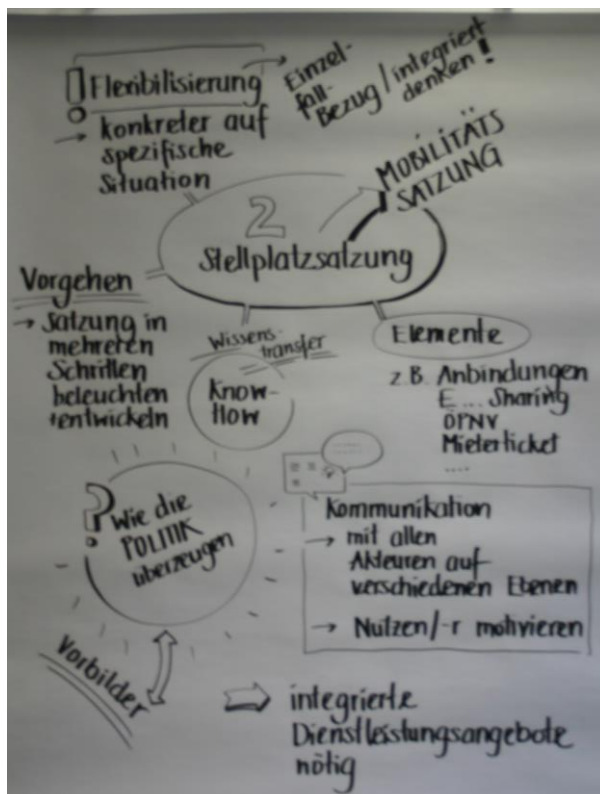 ! Flexibilisierung
→ konkreter auf
spezifische
Situation
→ Einzel-
fall-
Bezug / integriert
denken!
MOBILITÄTS
SATZUNG
2
Stellplatzsatzung
Vorgehen
→ Satzung in
mehreren
Schritten
beleuchten
+entwickeln
Wissens-
transfer
Know-
How
Elemente
z.B. Anbindungen
E... Sharing
ÖPNV
Mieterticket
....
? Wie die
POLITIK
überzeugen
Vorbilder
Kommunikation
→ mit allen
Akteuren auf
verschiedenen Ebenen
→ Nutzen/-r motivieren
⇒ integrierte
Dienstleistungsangebote
nötig